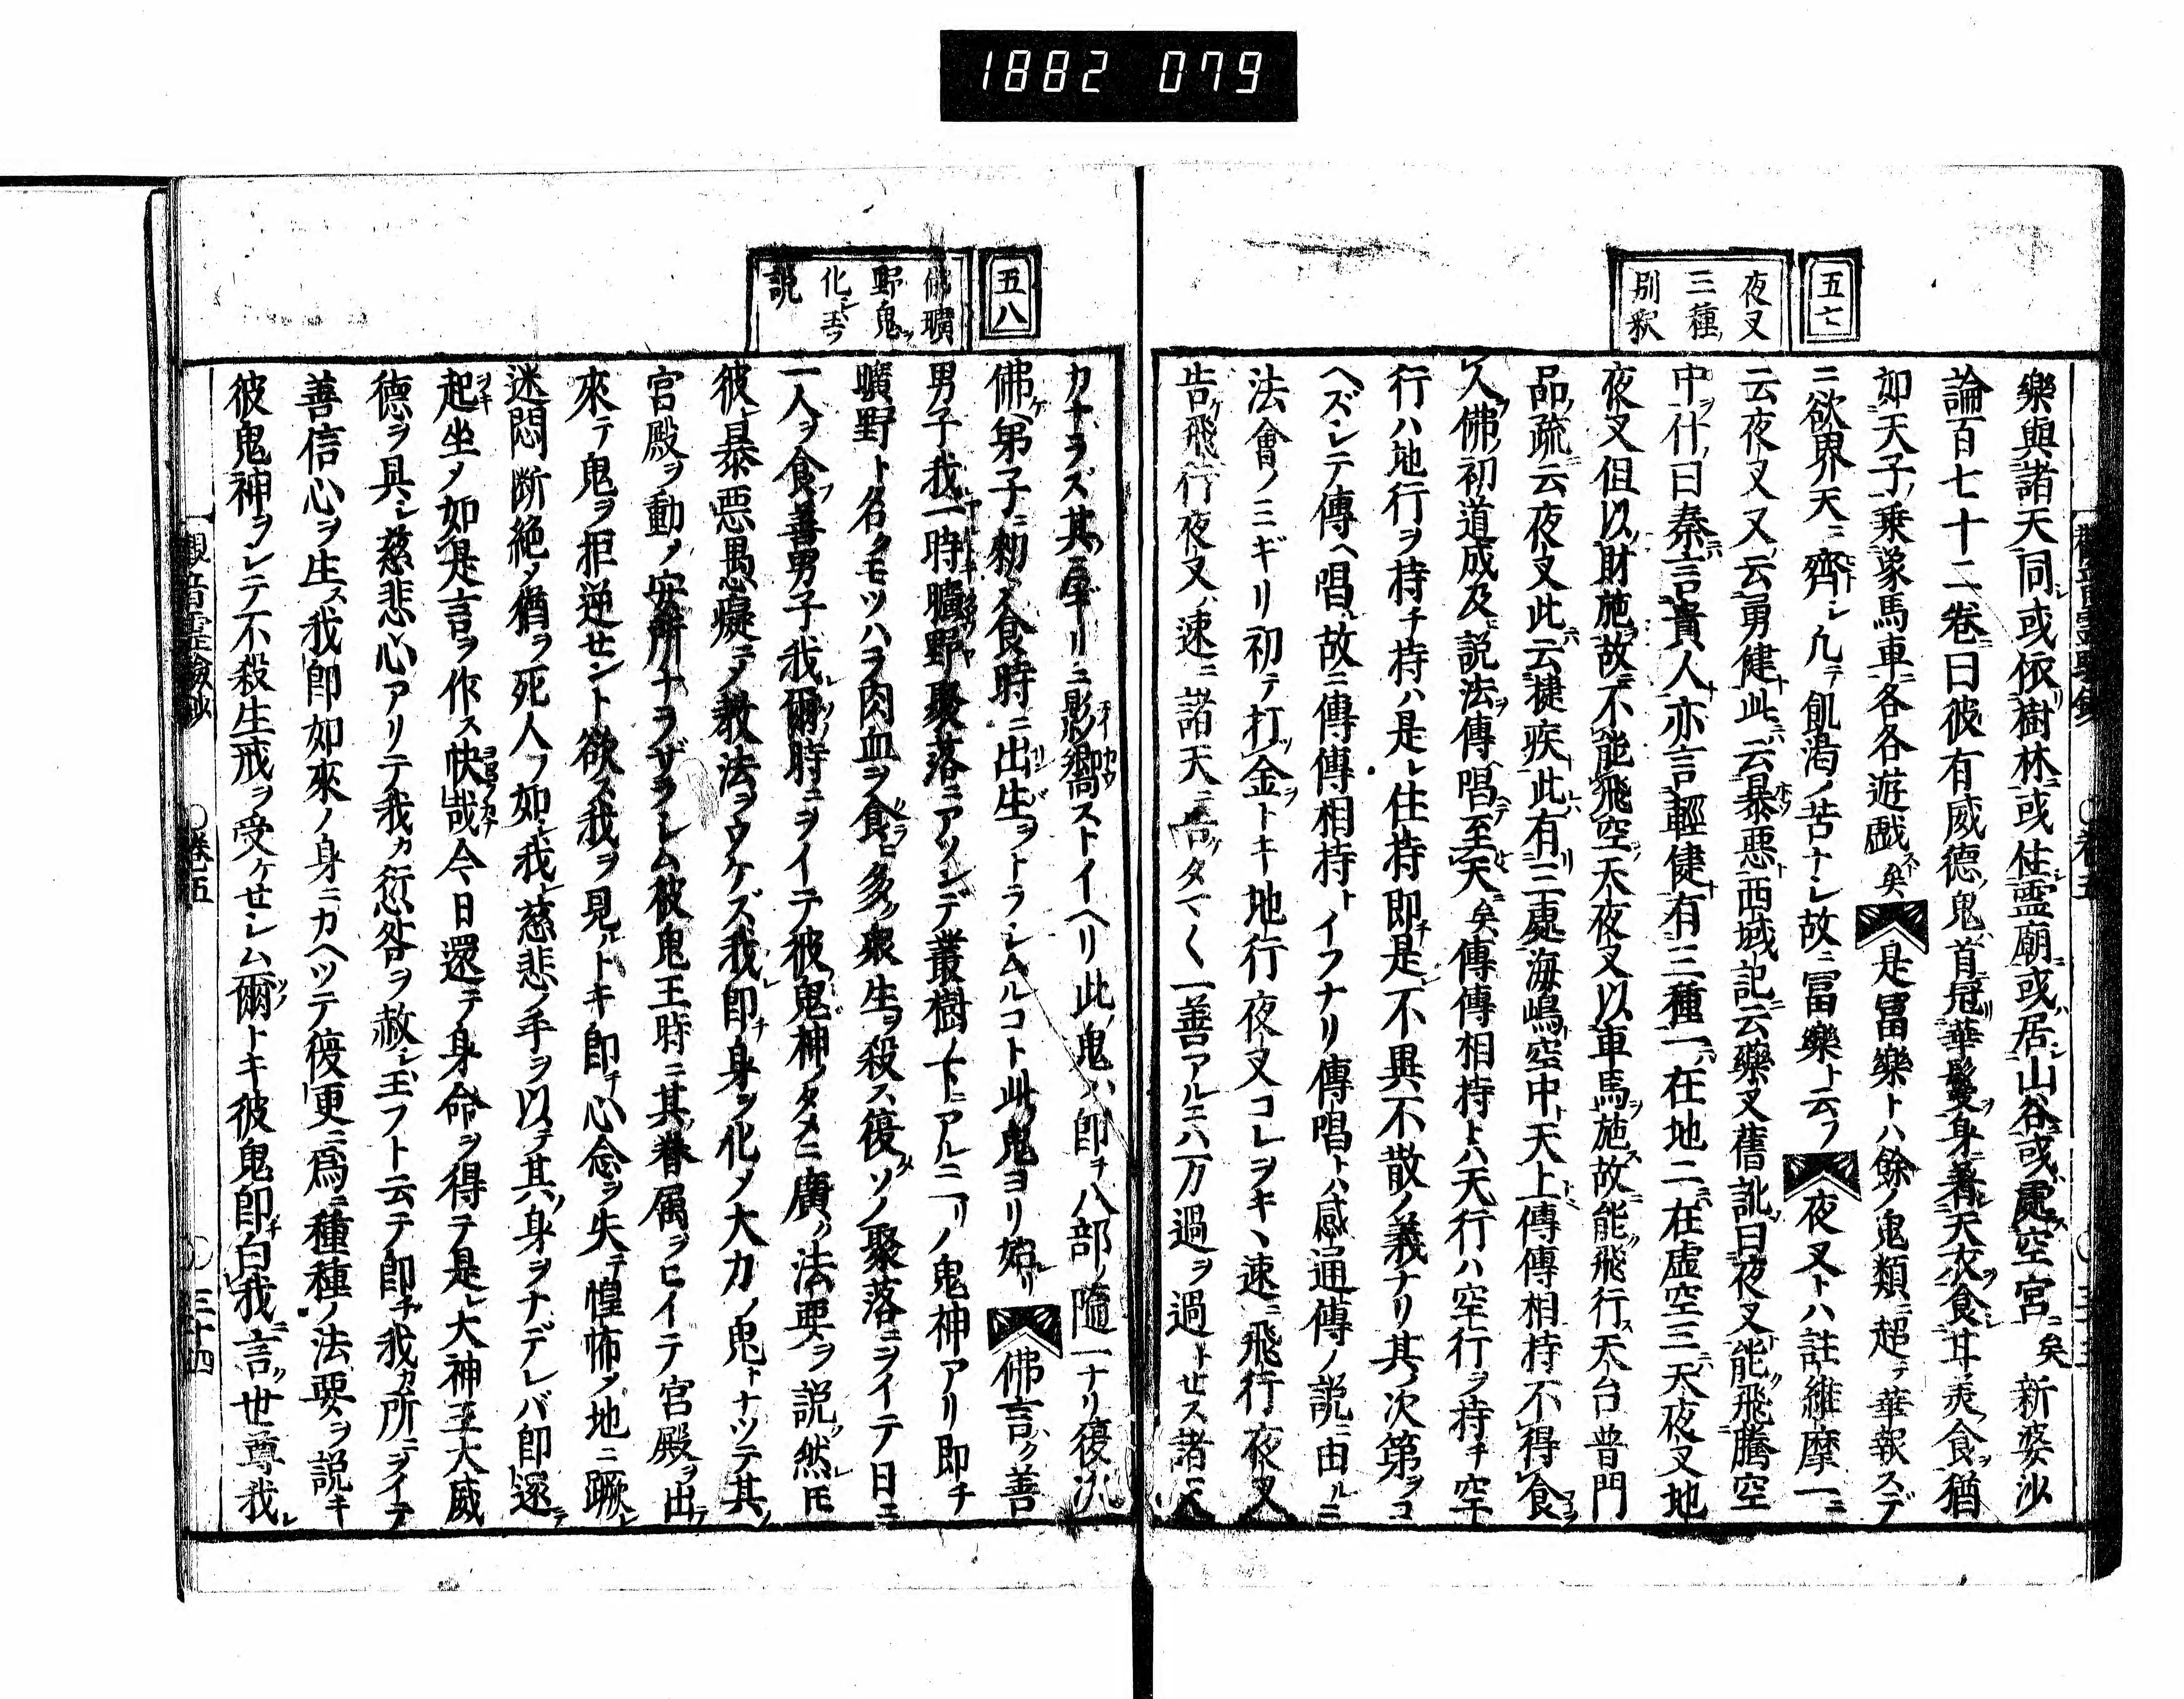 1882 079
五七
夜叉
三種
別釈
樂與諸天同或依樹林或住霊廟或居山谷或處空宮矣新婆沙
論百七十二巻曰彼有威徳鬼首冠華鬘身著天衣食甘美食猶
如天子乗象馬車各各遊戯矣是冨樂トハ餘ノ鬼類ニ超テ華報スデ
ニ欲界天ニ齊シ凢テ飢渇ノ苦ナシ故ニ冨樂ト云フ夜叉トハ註維摩一ニ
云夜叉又云勇健此云暴惡西域記云藥叉舊訛曰夜叉能飛騰空
中什曰秦言貴人亦言輕健有三種一在地二在虚空三天夜叉地
夜叉但以財施故不能飛空天夜叉以車馬施故能飛行天台普門
品疏云夜叉此云捷疾此有三處海嶋空中天上傳傳相持不得食
人佛初道成及説法傳唱至天矣傳傳相持トハ天行ハ空行ヲ持チ空
行ハ地行ヲ持チ持ハ是レ住持即チ是不異不散ノ義ナリ其ノ次第ヲコ
ヘズシテ傳ヘ唱故ニ傳傳相持トイフナリ傳唱トハ感通傳ノ説ニ由ルニ
法會ノミギリ初テ打金トキ地行夜叉コレヲキヽ速ニ飛行夜叉
告ケ飛行夜叉ノ速ニ諸天ニ告タマく一善アルニハ万過ヲ過トセス諸天
五八
佛曠
野鬼
化シ玉フ
説
カナラズ其ノ砌リニ影嚮ストイヘリ此鬼ハ即チ八部ノ隨一ナリ復次
佛弟子ニ勅シテ食時ニ出生ヲトラシムルコト此鬼ヨリ始リ佛言ク善
男子我一時曠野聚落ニアソンデ叢樹ノ下ニアルニ一リノ鬼神アリ即チ
曠野ト名クモツハラ肉血ヲ食ヒ多ク衆生ヲ殺ス復ソノ聚落ニヲイテ日ニ
一人ヲ食フ善男子我爾時ニヲイテ彼鬼神ノタメニ廣ク法要ヲ説然ㇾ圧
彼暴惡愚癡ニメ教法ヲウケズ我即チ身ヲ化メ大力ノ鬼トナツテ其
宮殿ヲ動メ安所ナラザラシム彼鬼王時ニ其眷属ヲヒイテ宮殿ヲ出
來テ鬼ヲ拒逆せント欲ス我ヲ見ルトキ即チ心念ヲ失テ惶怖メ地ニ蹶
迷悶断絶メ猶ヲ死人ノ如シ我慈悲ノ手ヲ以テ其ノ身ヲナデシバ即還テ
起坐メ如是言ヲ作ス快哉今日還テ身命ヲ得テ是レ大神王大威
徳ヲ具シ慈悲心アリテ我カ愆咎ヲ赦シ玉フト云テ即チ我カ所ニヲイテ
善信心ヲ生ス我即如來ノ身ニカヘツテ復更ニ為ニ種種ノ法要ヲ説キ
彼鬼神ヲシテ不殺生戒ヲ受ケせシム爾トキ彼鬼即チ白我言世尊我
觀音霊驗鈔 〇巻五 〇三十四